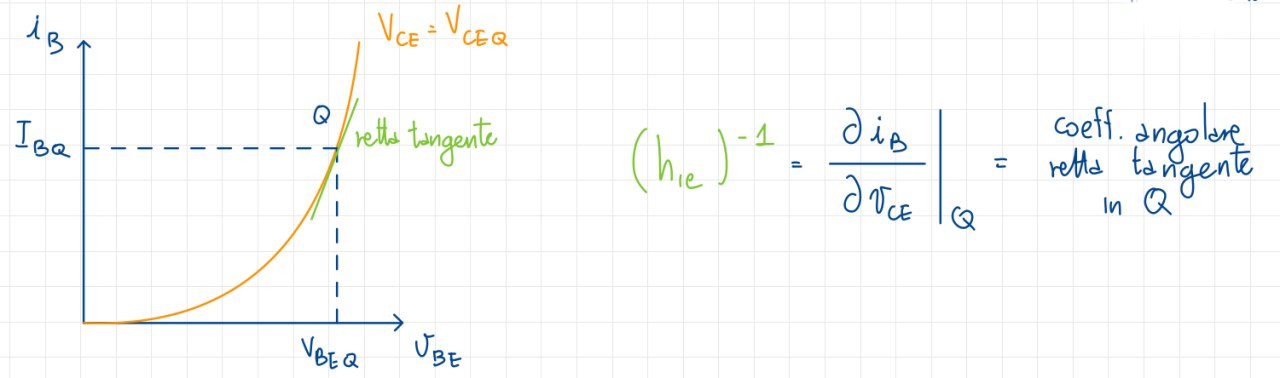 i_B
V_CE = V_CEQ
Q
I_BQ
retta tangente
V_BEQ
v_BE
(h_ie)^-1 = ∂i_B / ∂v_CE |_Q = coeff. angolare
retta tangente
in Q